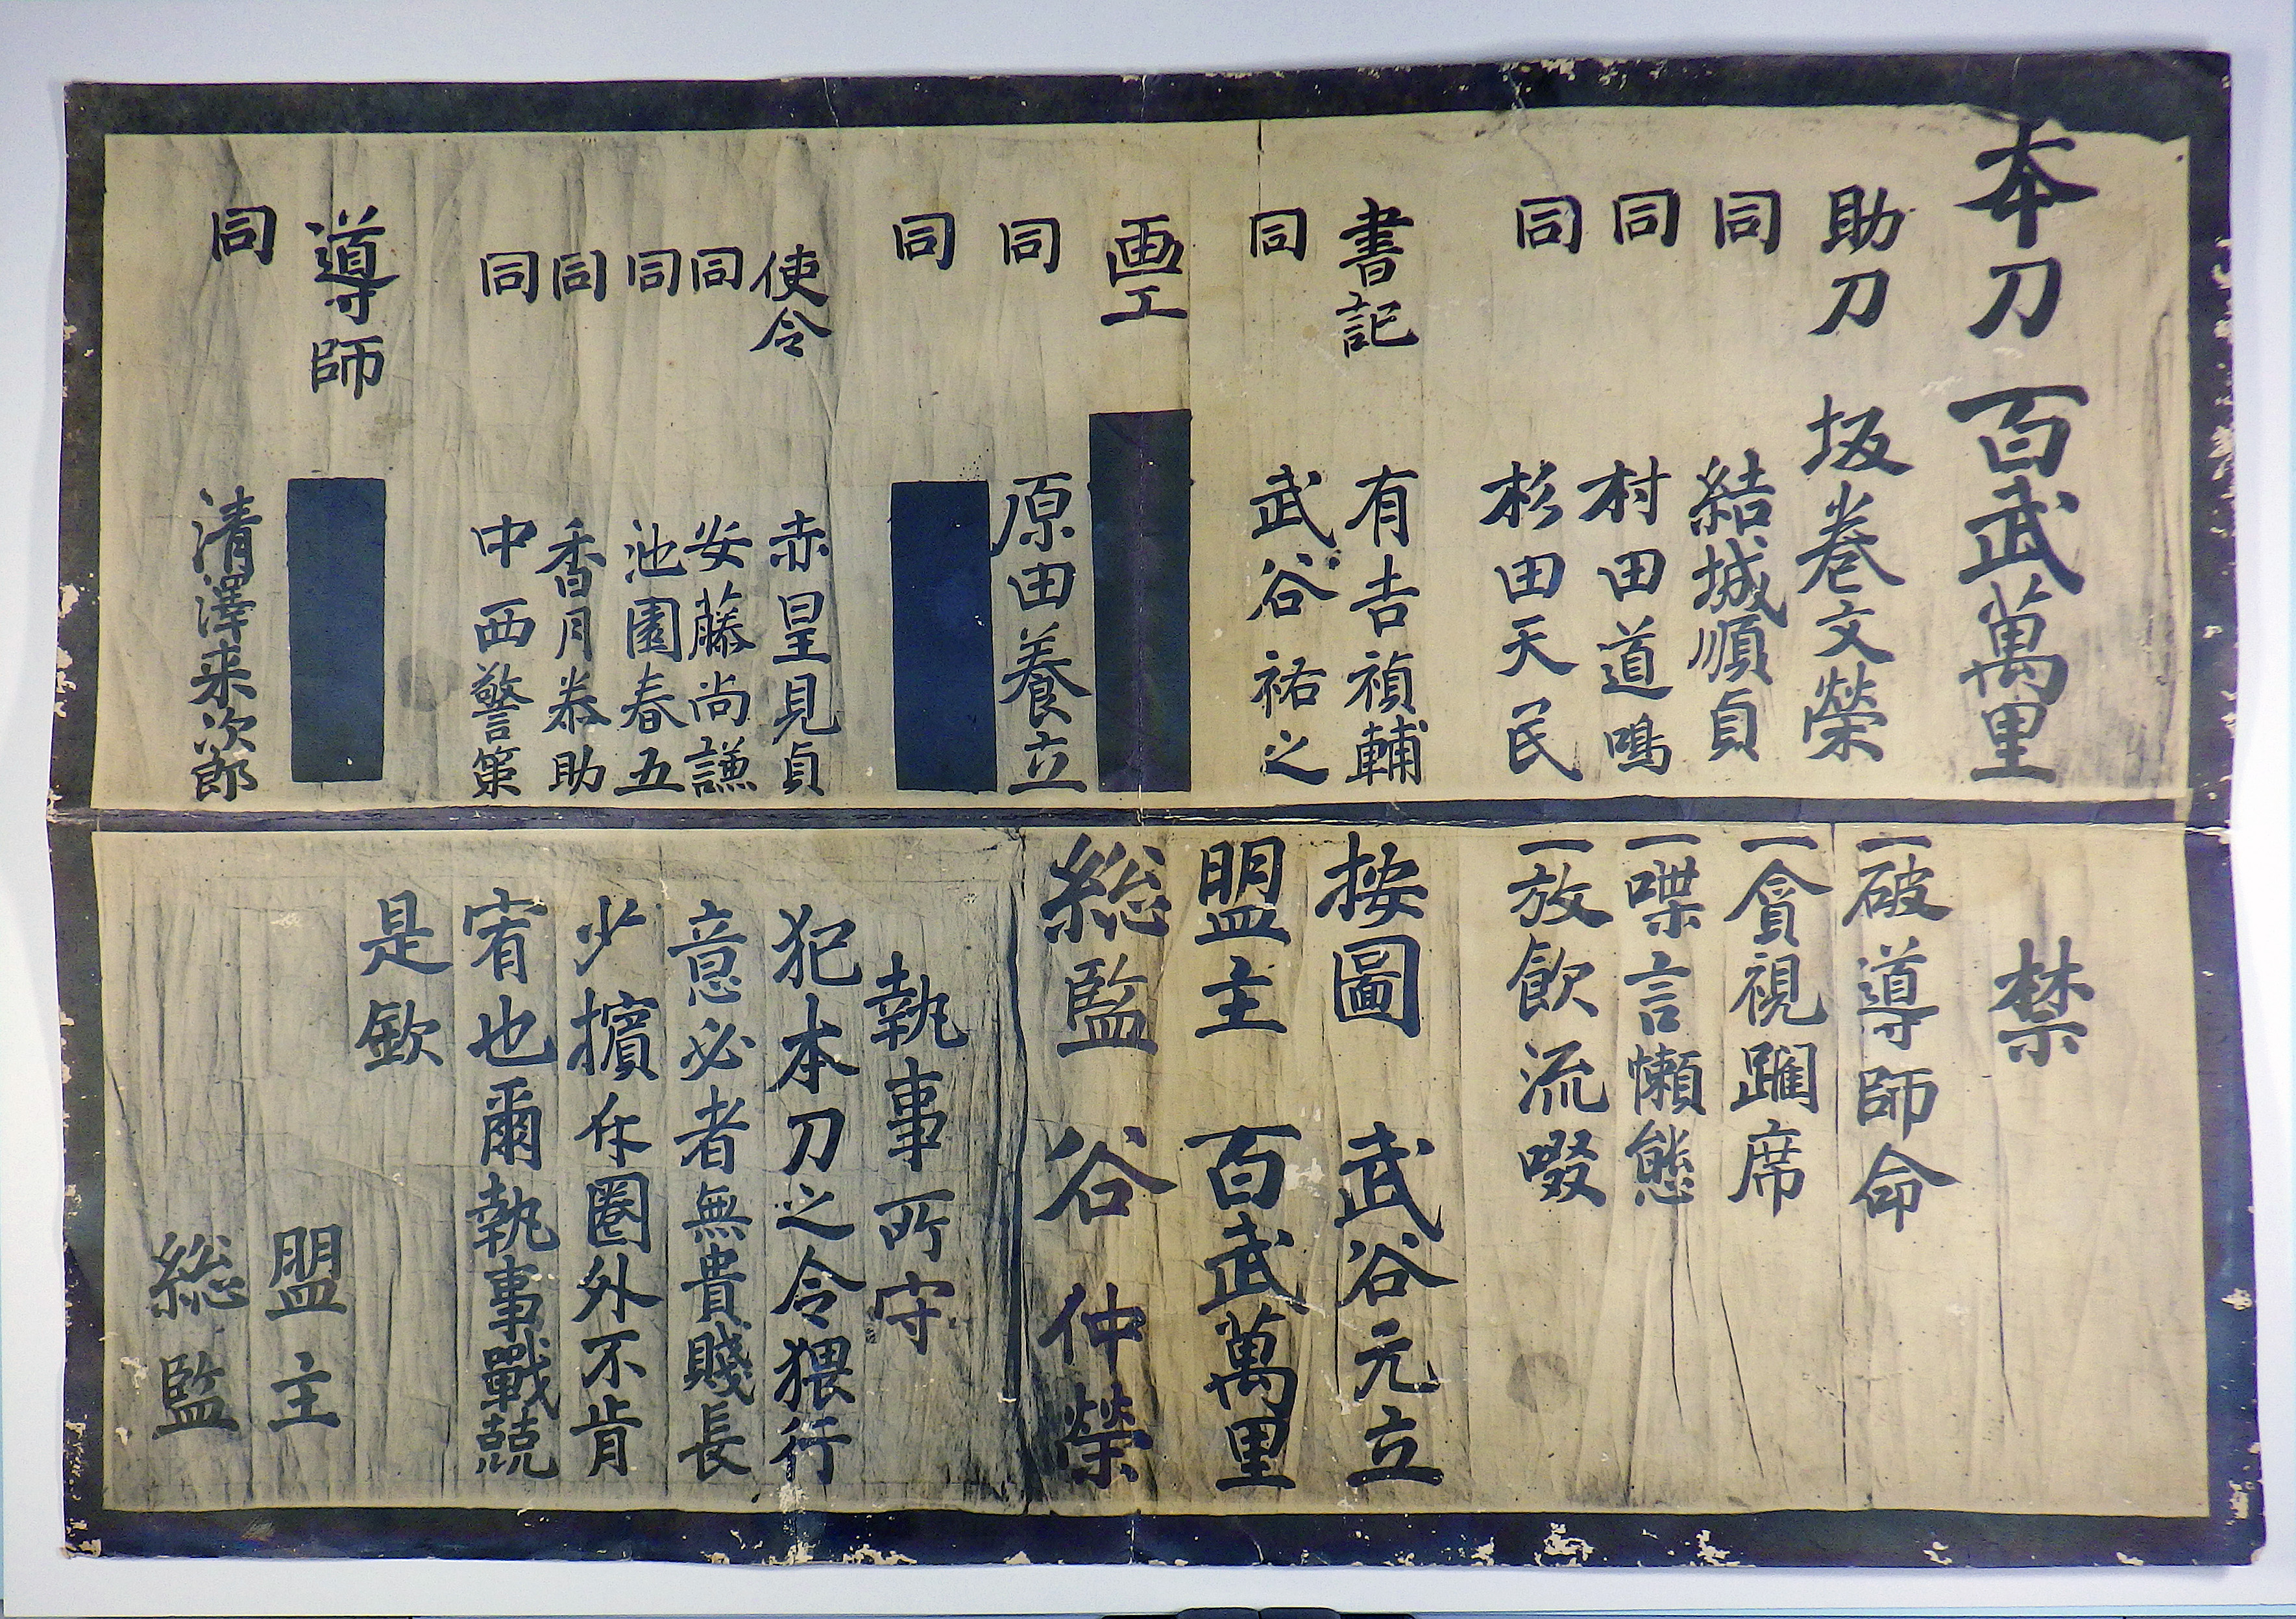 本刀 百武萬里
助刀 坂巻文榮
同 結城順貞
同 村田道鳴
同 杉田天民
書記 有吉禎輔
同 武谷祐之
画工
同 原田養立
同
使令 赤星見貞
同 安藤尚謙
同 池園春五
同 香月恭助
同 中西警策
導師
同 清澤来次郎
禁
一破導師命
一貪視躙席
一喋言懶態
一放飲流啜
按圖 武谷元立
盟主 百武萬里
総監 谷仲榮
執事所守
犯本刀之令猥行
意必者無貴賤長
少擯斥圏外不肯
宥也爾執事戰兢
是欽
盟主
総監